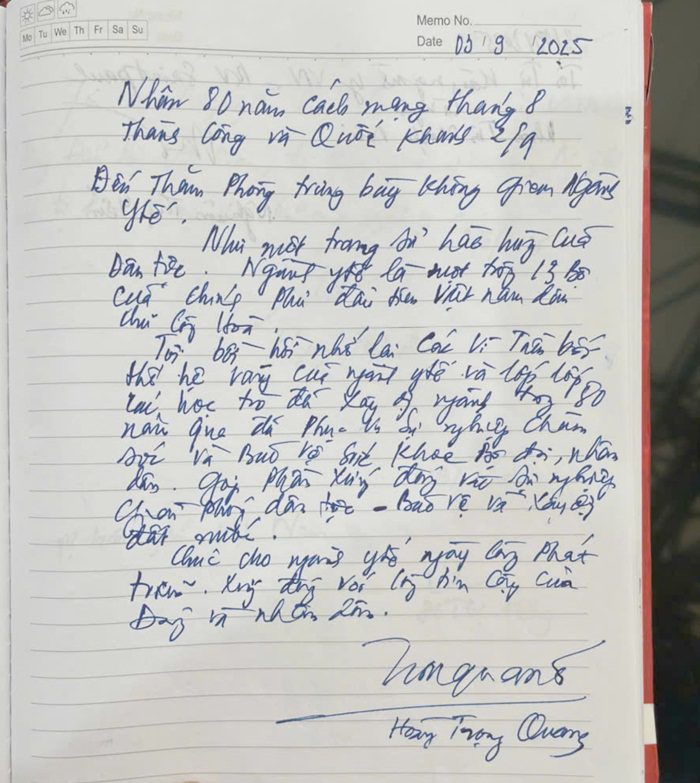 Memo No.
Mo Tu We Th Fr Sa Su
Date 03 / 9 / 2025
Nhân 80 năm Cách mạng tháng 8
Thành Công và Quốc Khánh 2/9
Đến Thăm Phòng trưng bày không gian Ngành
Ytế.
Như một trang sử hào hùng của
Dân tộc. Ngành ytế là một trong 13 Bộ
của Chính Phủ đầu tiên Việt nam dân
chủ Cộng Hoà.
Tôi bồi hồi nhớ lại các vị Tiền bối
thế hệ vàng của ngành ytế và lớp lớp
các học trò đã xây dựng ngành trong 80
năm qua đã Phục vụ sự nghiệp Chăm
sóc và Bảo vệ sức khoẻ Bộ đội, nhân
dân. Góp Phần xứng đáng với sự nghiệp
Giải phóng dân tộc - Bảo vệ và xây dựng
đất nước.
Chúc cho ngành ytế ngày càng Phát
triển. Xứng đáng với lòng tin cậy của
Đảng và nhân dân.
Hoàng Trọng Quang